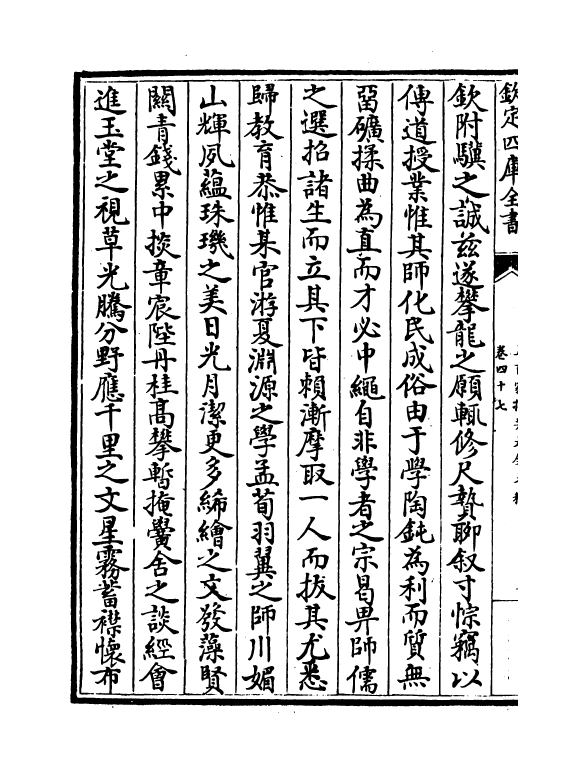 欽定四庫全書
卷四十七
欽附驥之誠兹遂攀龍之願輒修尺贄聊叙寸悰竊以
傳道授業惟其師化民成俗由于學陶鈍為利而質無
㗊礦揉曲為直而才必中繩自非學者之宗曷畀師儒
之選招諸生而立其下皆賴漸摩取一人而拔其尤悉
歸教育恭惟某官游夏淵源之學孟荀羽翼之師川媚
山輝夙藴珠璣之美日光月潔更多絺繪之文發藻賢
關青錢累中掞章宸陛丹桂髙攀暫掩黌舍之談經㑹
進玉堂之視草光騰分野應千里之文星霧蓄襟懷布